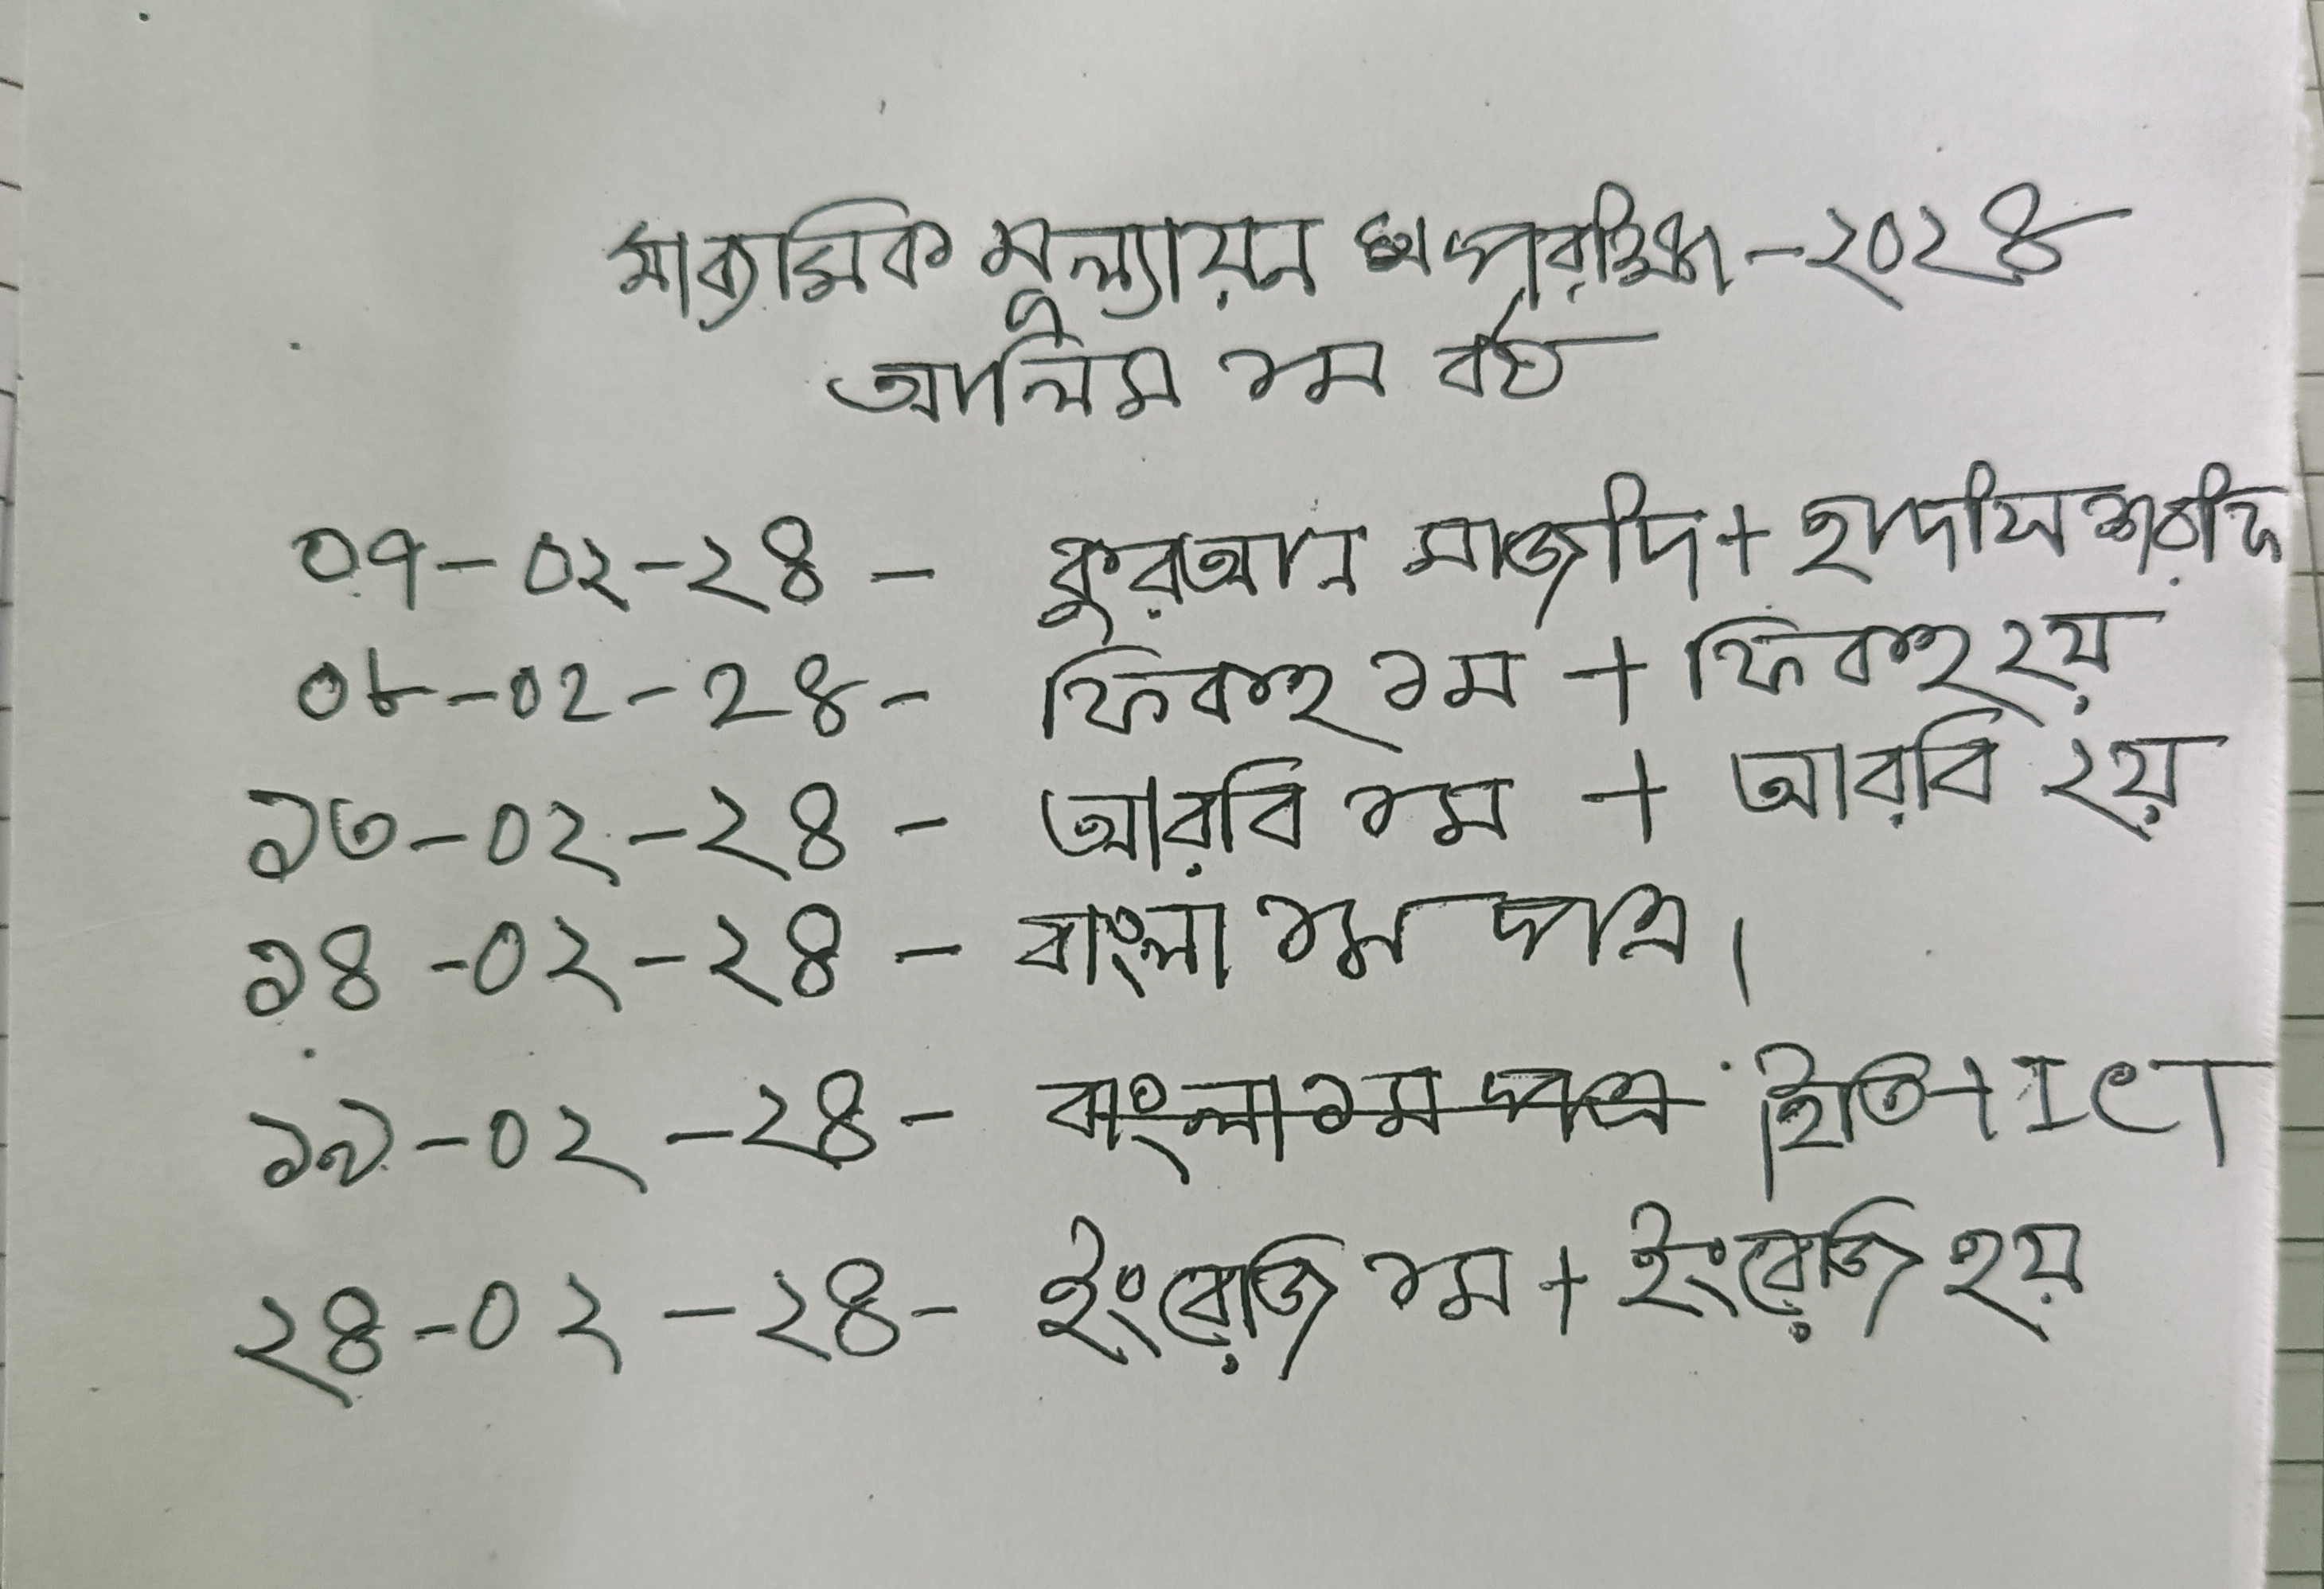 মাধ্যমিক মূল্যায়ন পরীক্ষা-২০২৪
আলিম ১ম বর্ষ
০৭-০২-২৪ - কুরআন মাজীদ + হাদীস শরীফ
০৮-০২-২৪ - ফিকহ ১ম + ফিকহ ২য়
১৩-০২-২৪ - আরবি ১ম + আরবি ২য়
১৪-০২-২৪ - বাংলা ১ম পত্র।
১৯-০২-২৪ - বাংলা ১ম পত্র ইতি+ICT
২৪-০২-২৪ - ইংরেজি ১ম + ইংরেজি ২য়